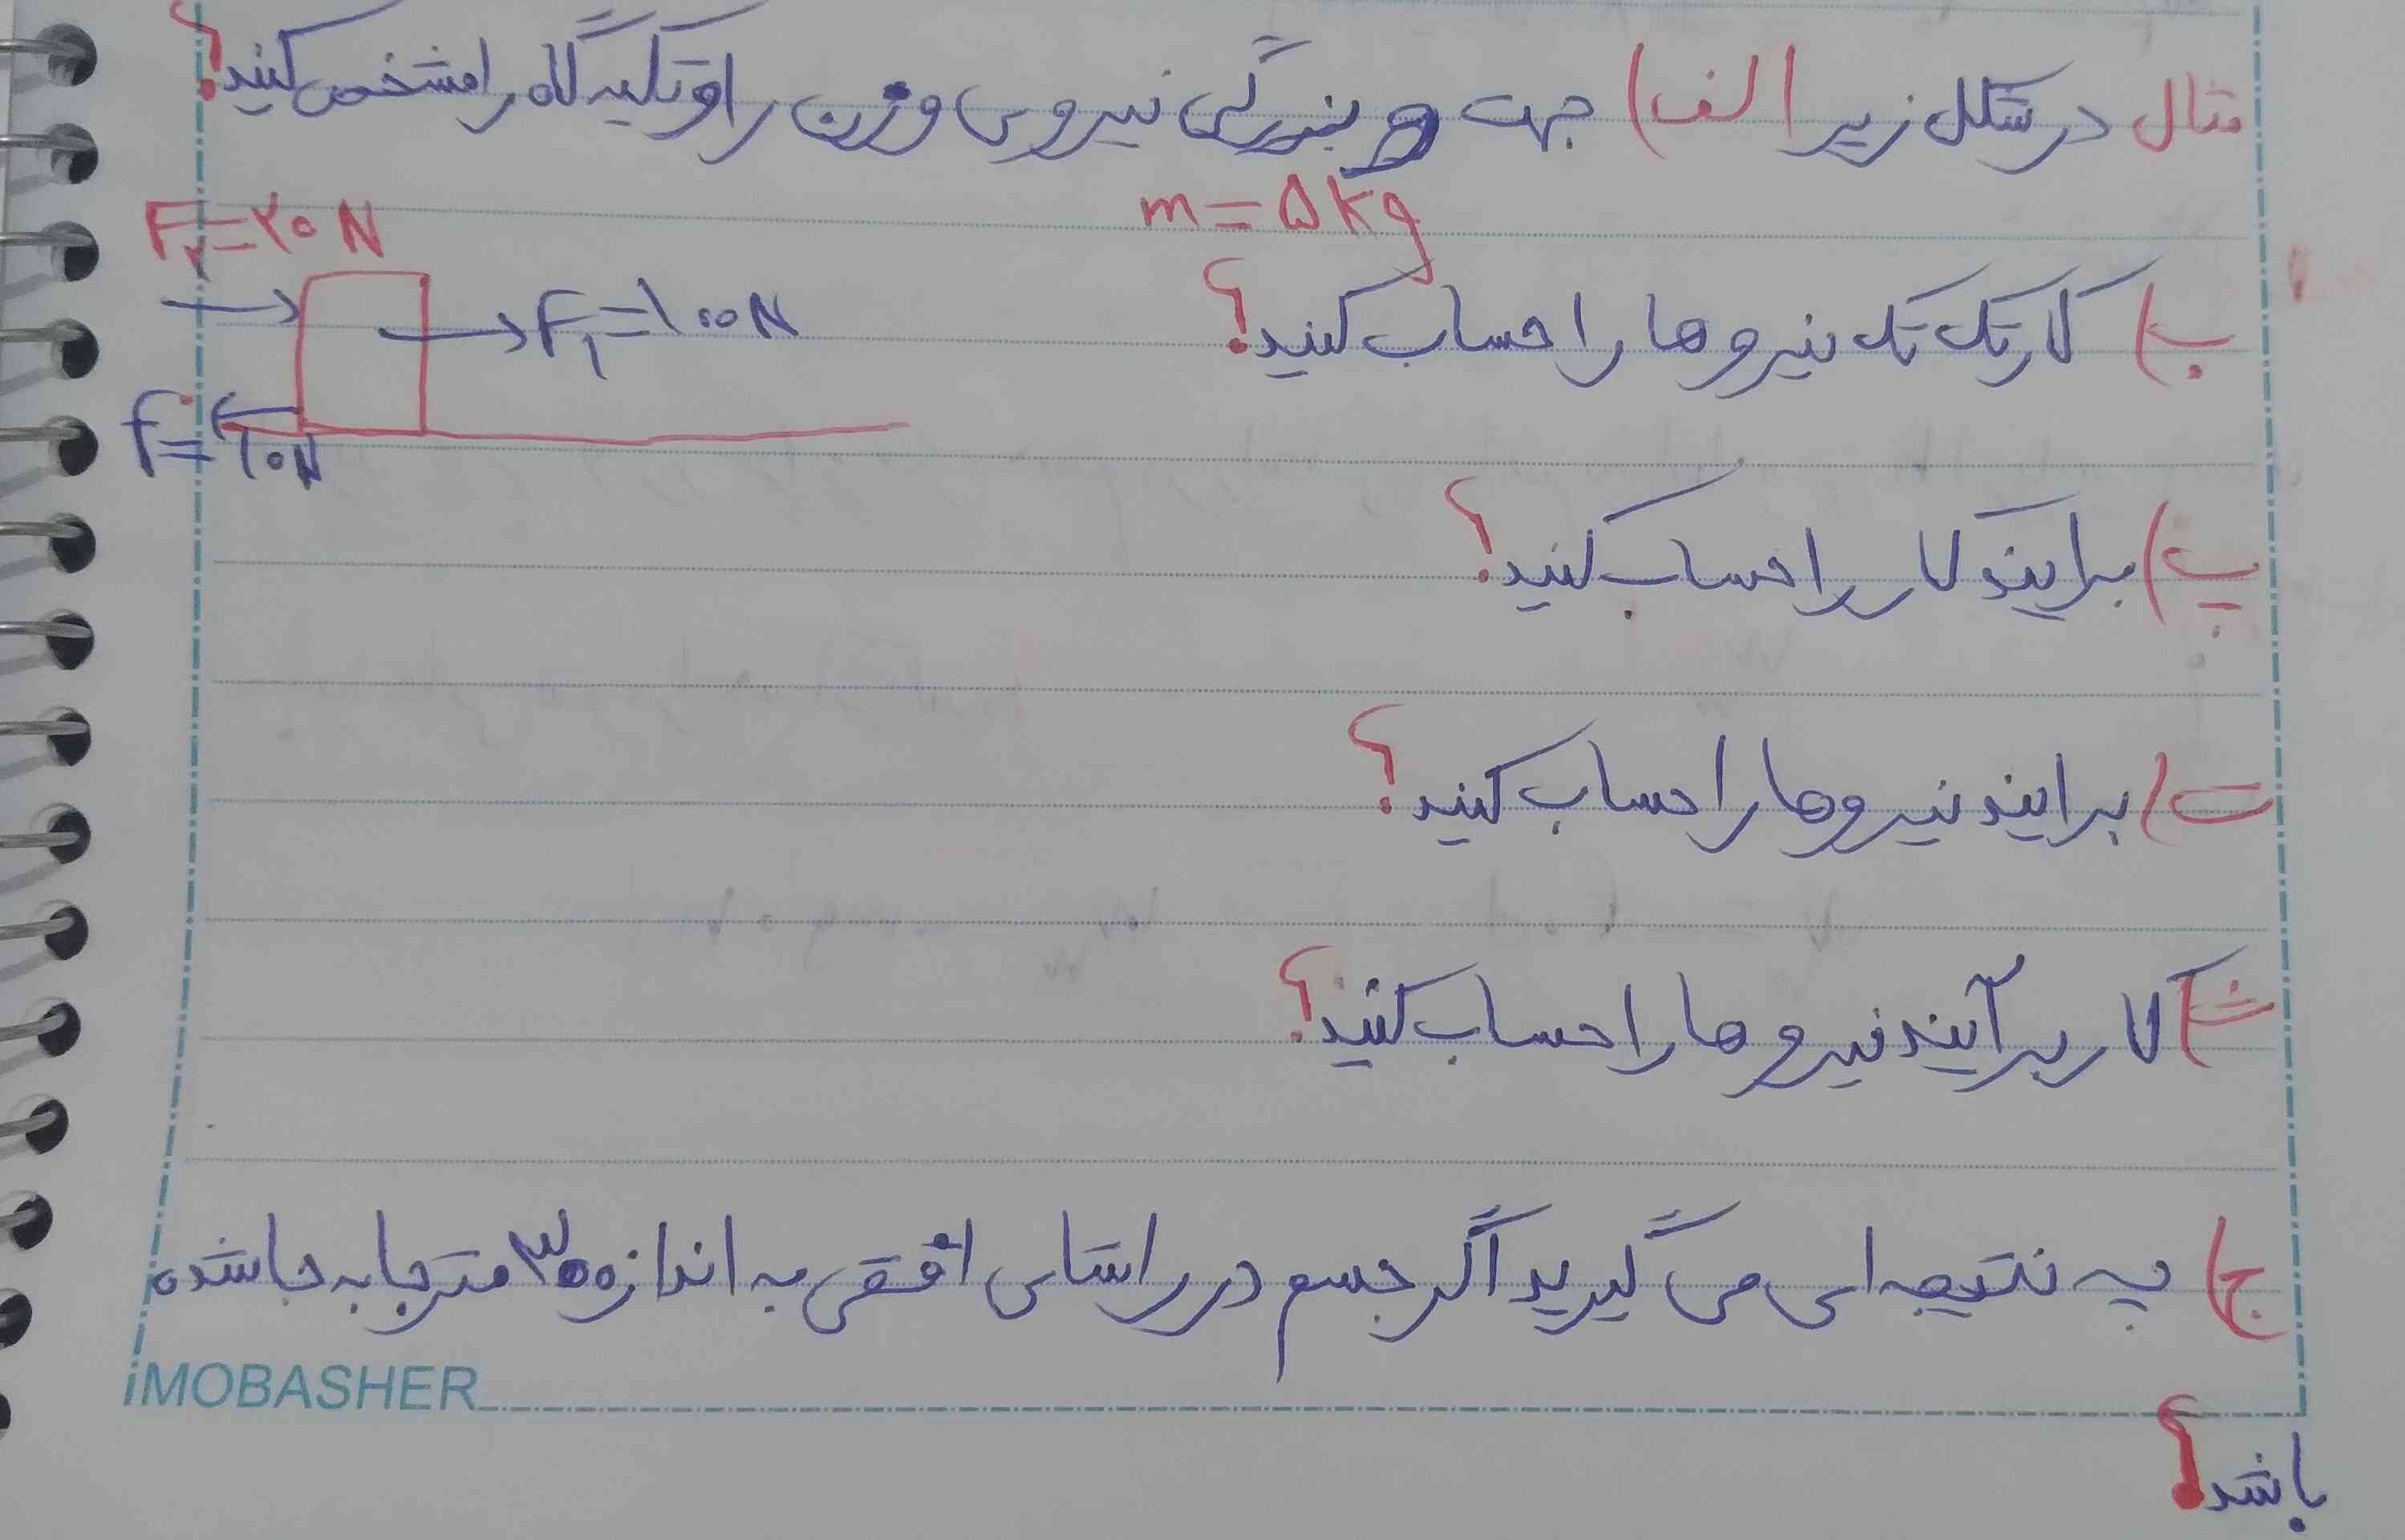 مثال در شکل زیر الف) جهت و بزرگی نیروی وزن را و تکیه گاه را مشخص کنید؟
m = ۵ kg
F۲ = ۲۰ N
F۱ = ۱۰۰ N
f = ۱۰ N
ب) کار تک تک نیروها را حساب کنید؟
پ) برایند کار را حساب کنید؟
ت) برایند نیروها را حساب کنید؟
ث) کار برآیند نیروها را حساب کنید؟
ج) چه نتیجه ای می گیرید اگر جسم در راستای افقی به اندازه ۳۰ متر جا به جا شده
iMOBASHER
باشد؟